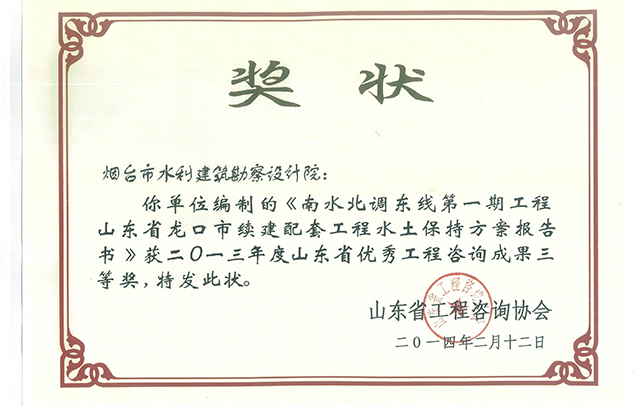 奖状
烟台市水利建筑勘察设计院：
你单位编制的《南水北调东线第一期工程
山东省龙口市续建配套工程水土保持方案报告
书》获二〇一三年度山东省优秀工程咨询成果三
等奖，特发此状。
山东省工程咨询协会
二〇一四年二月十二日